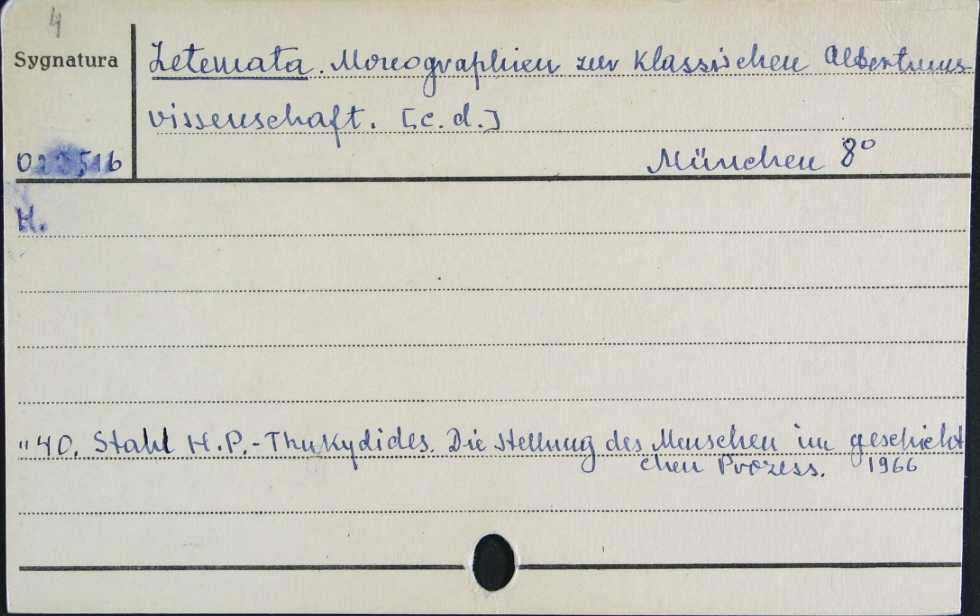 4
Sygnatura
Zetemata. Monographien zur Klassischen Altertums-
wissenschaft. [c.d.]
München 8°
H.
"40. Stahl H.P.-Thukydides. Die Stellung des Menschen im geschicht
chen Prozess. 1966